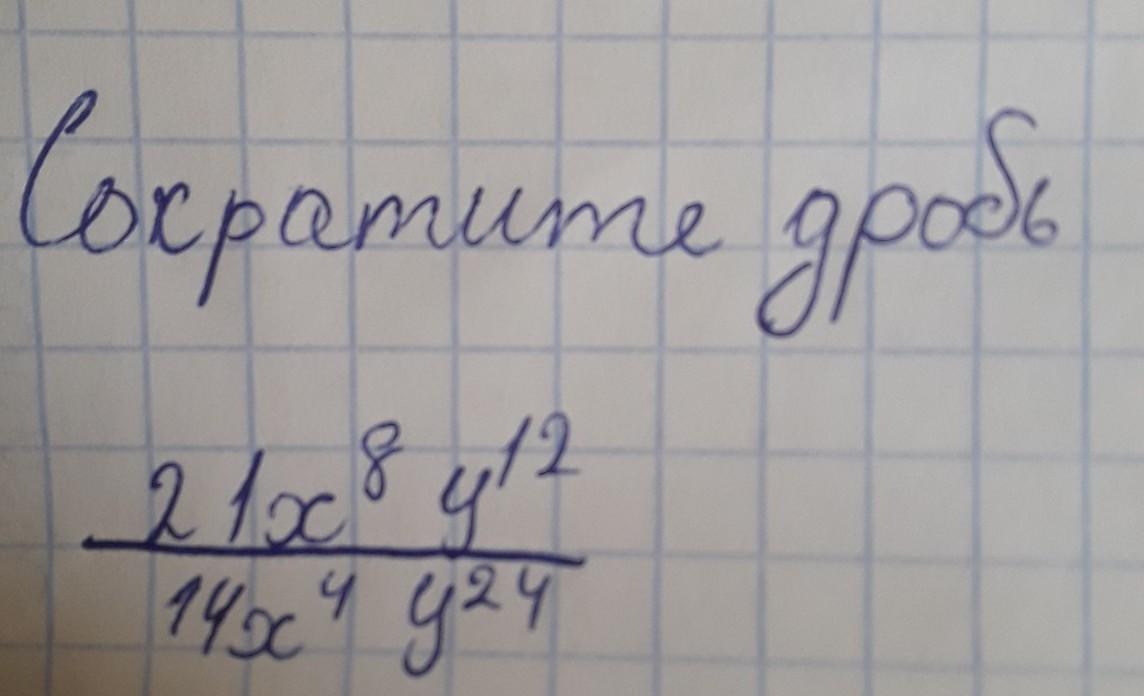 Сократите дробь
21x⁸ y¹²
14x⁴ y²⁴